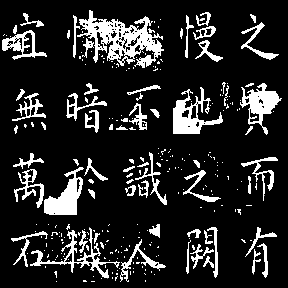 之賢而有
慢弛之闕
又不識人
情暗於機
宜無萬石